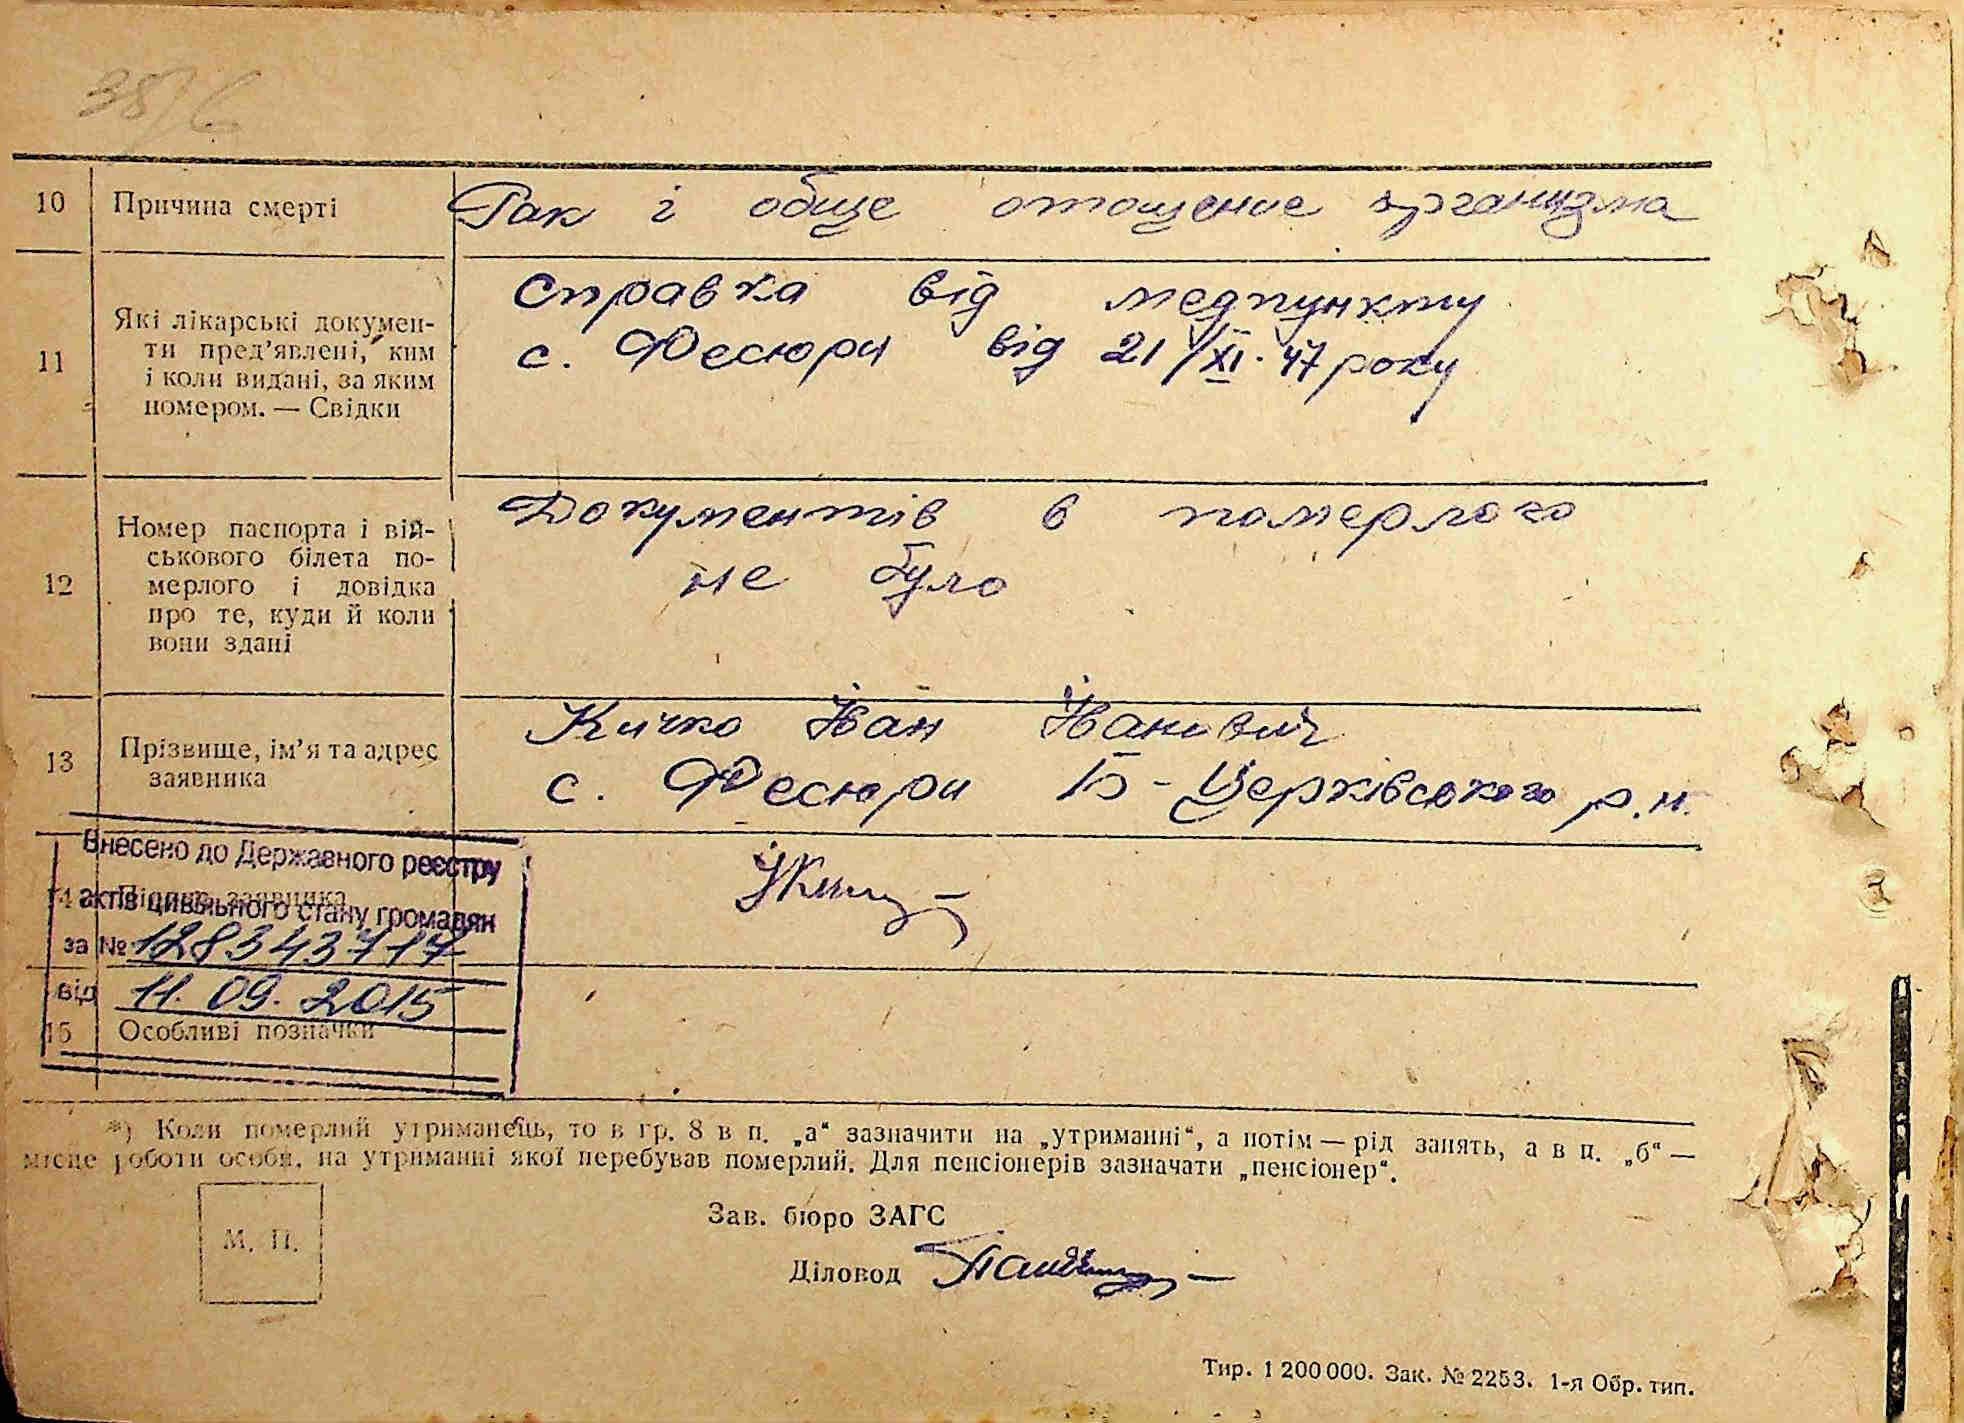 38/6
10 Причина смерті Рак і обще отощение организма
11 Які лікарські докумен-
ти пред'явлені, ким
і коли видані, за яким
номером. — Свідки
Справка від медпункту
с. Фесюри від 21/XI·47 року
12 Номер паспорта і вій-
ськового білета по-
мерлого і довідка
про те, куди й коли
вони здані
Документів в померлого
не було
13 Прізвище, ім'я та адрес
заявника
Кичко Іван Іванович
с. Фесюри Б-Церківського р.н.
14 Підпис заявника
Внесено до Державного реєстру
актів цивільного стану громадян
за № 128343717
від 11.09.2015
15 Особливі позначки
*) Коли померлий утриманець, то в гр. 8 в п. „а“ зазначити на „утриманні“, а потім — рід занять, а в п. „б“ —
місце роботи особи, на утриманні якої перебував померлий. Для пенсіонерів зазначати „пенсіонер“.
М. П.
Зав. бюро ЗАГС
Діловод
Тир. 1 200 000. Зак. № 2253. 1-я Обр. тип.